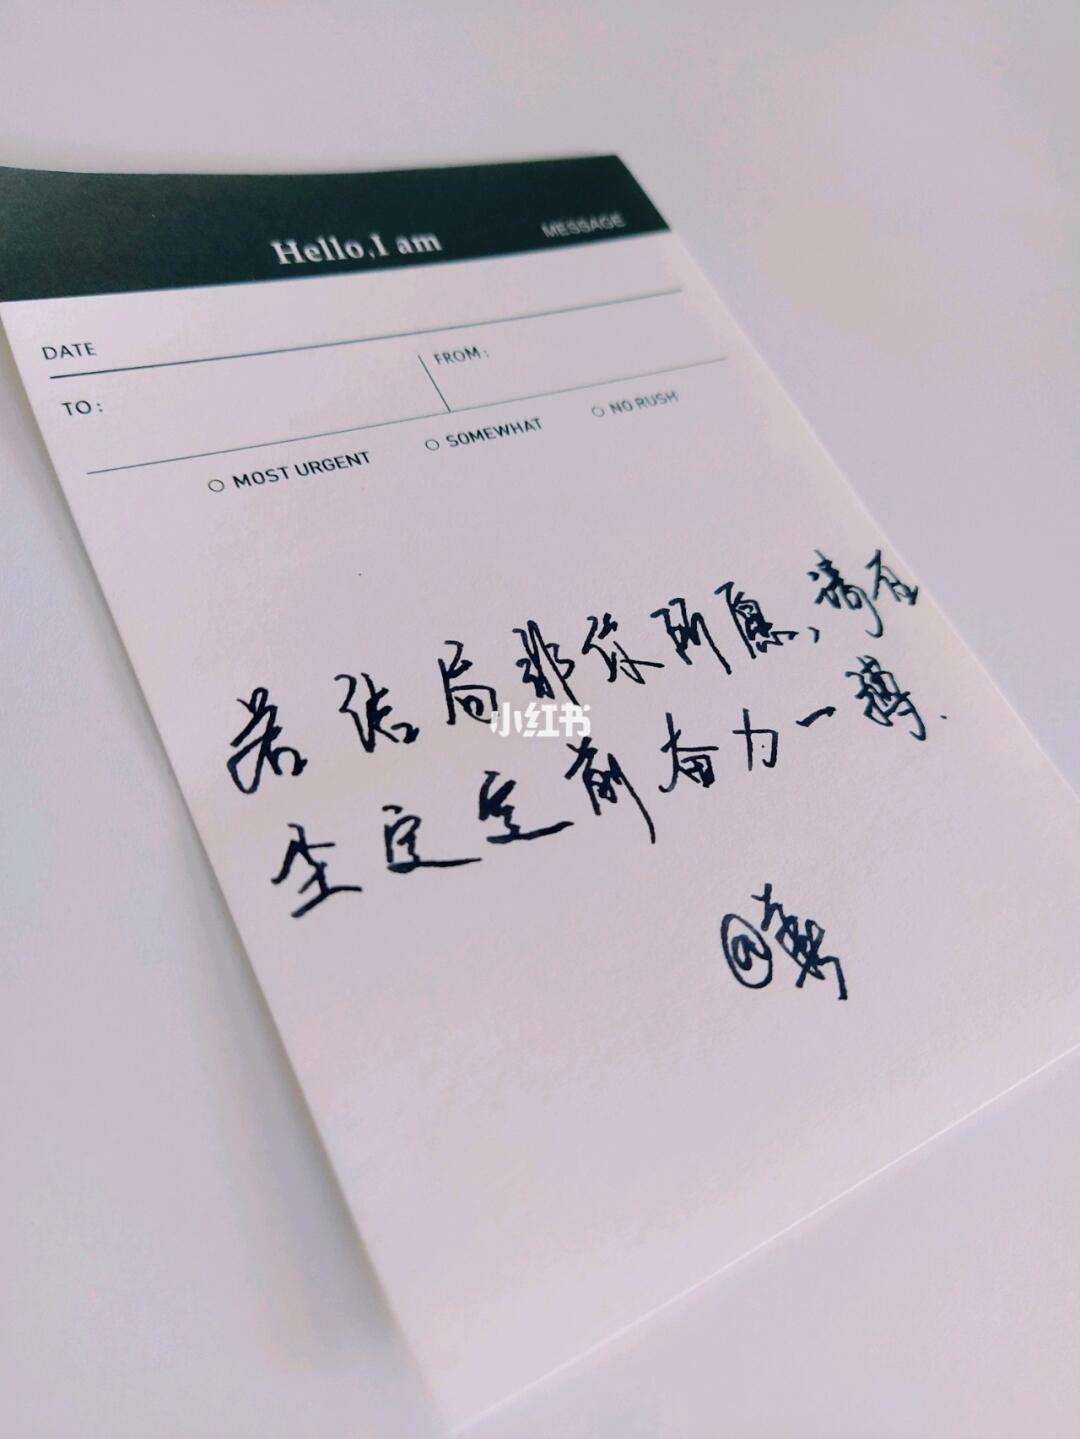 Hello,I am
MESSAGE
DATE
TO:
FROM:
MOST URGENT
SOMEWHAT
NO RUSH
若结局非你所愿,请在
尘定前奋力一搏.
小红书